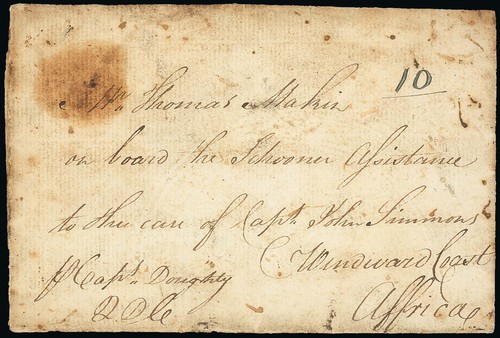 10
Mr. Thomas Makin
on board the Schooner Assistance
to the care of Capt. John Simmons
Windward Coast
Africa
Capt. Doughty